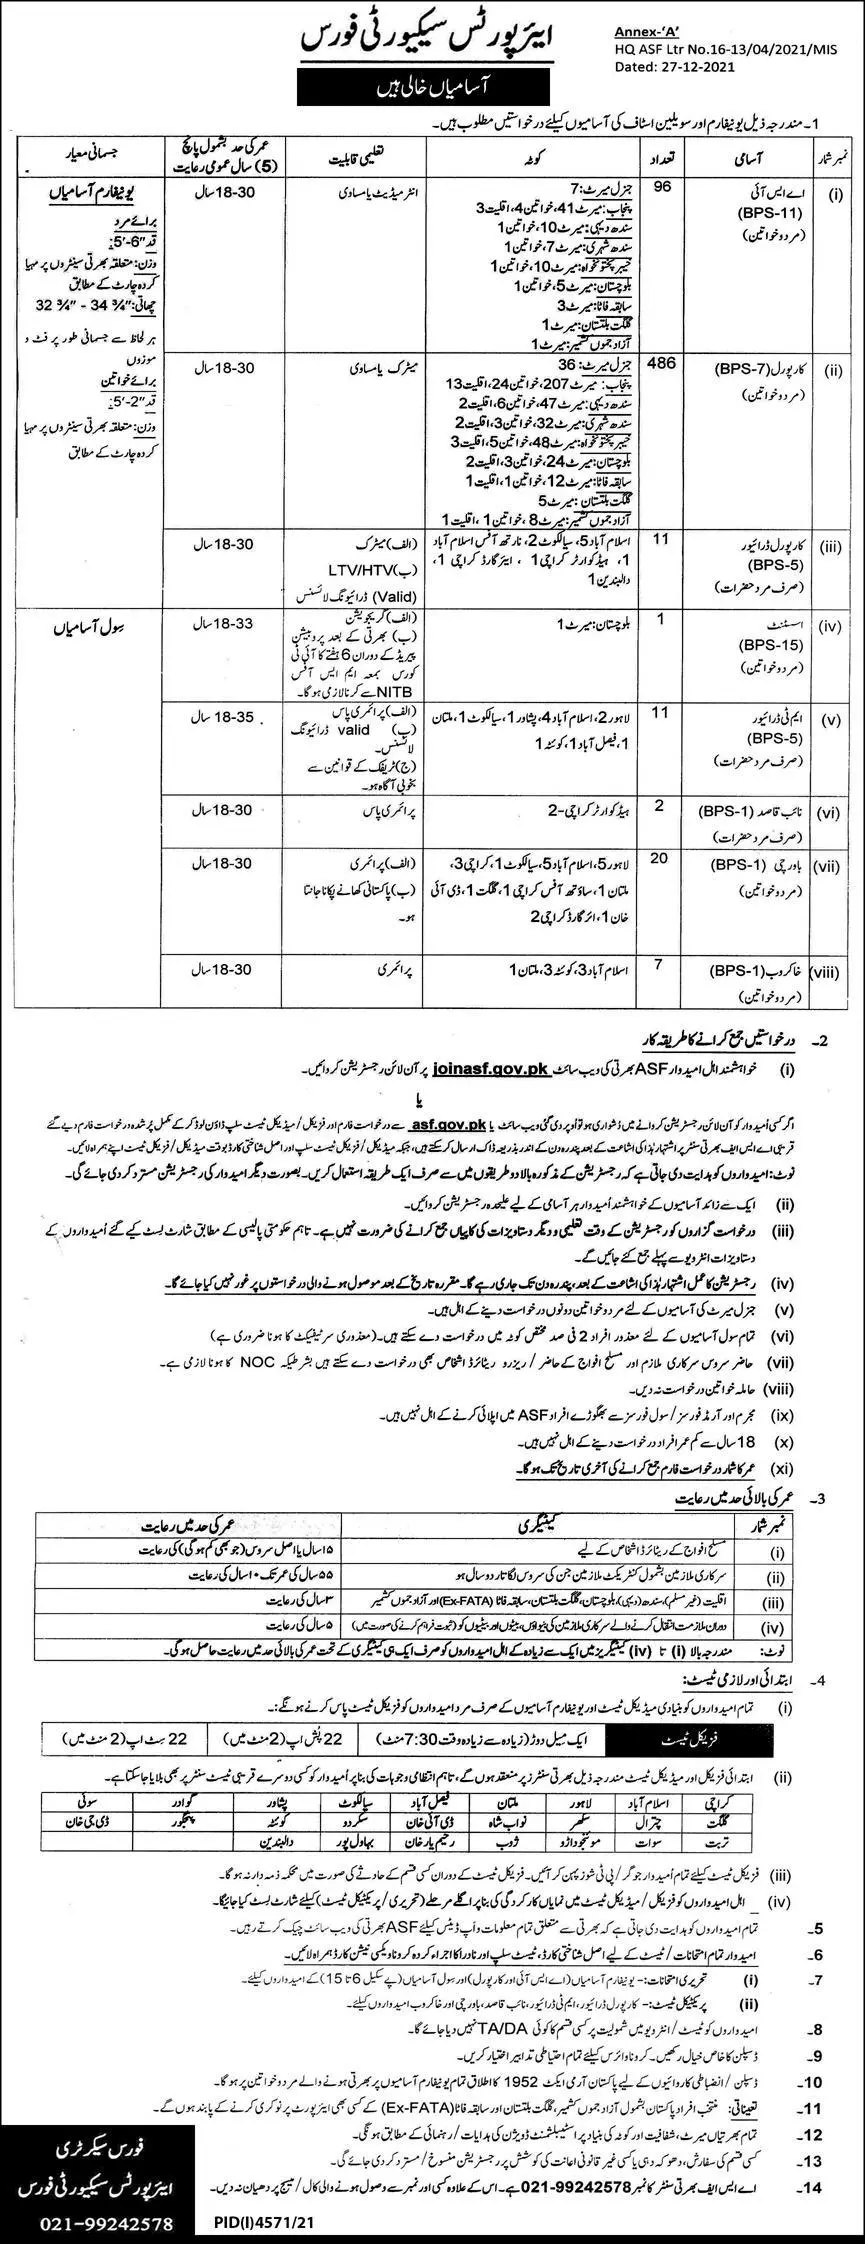 ایئرپورٹس سیکیورٹی فورس
Annex-‘A’
HQ ASF Ltr No.16-13/04/2021/MIS
Dated: 27-12-2021
آسامیاں خالی ہیں
1۔ مندرجہ ذیل یونیفارم اور سویلین اسٹاف کی آسامیوں کیلئے درخواستیں مطلوب ہیں۔
نمبر شمار آسامی تعداد کوٹہ تعلیمی قابلیت عمر کی حد بشمول پانچ (5) سال عمومی رعایت جسمانی معیار
(i) اے ایس آئی (BPS-11) (مرد و خواتین)
96
جنرل میرٹ: 7
پنجاب: میرٹ 41، خواتین 4، اقلیت 3
سندھ دیہی: میرٹ 10، خواتین 1
سندھ شہری: میرٹ 7، خواتین 1
خیبر پختونخواہ: میرٹ 10، خواتین 1
بلوچستان: میرٹ 5، خواتین 1
سابقہ فاٹا: میرٹ 3
گلگت بلتستان: میرٹ 1
آزاد جموں کشمیر: میرٹ 1
انٹرمیڈیٹ یا مساوی
18-30 سال
یونیفارم آسامیاں
برائے مرد
قد: 5'-6"
وزن: متعلقہ بھرتی سینٹروں پر مہیا
کردہ چارٹ کے مطابق
چھاتی: 32 ¾" - 34 ¾"
ہر لحاظ سے جسمانی طور پر فٹ و
موزوں
برائے خواتین
قد: 5'-2"
وزن: متعلقہ بھرتی سینٹروں پر مہیا
کردہ چارٹ کے مطابق
(ii) کارپورل (BPS-7) (مرد و خواتین)
486
جنرل میرٹ: 36
پنجاب: میرٹ 207، خواتین 24، اقلیت 13
سندھ دیہی: میرٹ 47، خواتین 6، اقلیت 2
سندھ شہری: میرٹ 32، خواتین 3، اقلیت 2
خیبر پختونخواہ: میرٹ 48، خواتین 5، اقلیت 3
بلوچستان: میرٹ 24، خواتین 3، اقلیت 2
سابقہ فاٹا: میرٹ 12، خواتین 1، اقلیت 1
گلگت بلتستان: میرٹ 5
آزاد جموں کشمیر: میرٹ 8، خواتین 1، اقلیت 1
میٹرک یا مساوی
18-30 سال
(iii) کارپورل ڈرائیور (BPS-5) (صرف مرد حضرات)
11
اسلام آباد 5، سیالکوٹ 2، نارتھ آفس اسلام آباد
1، ہیڈ کوارٹر کراچی 1، ایئر گارڈ کراچی 1،
دالبندین 1
(الف) میٹرک
(ب) LTV/HTV
(Valid) ڈرائیونگ لائسنس
18-30 سال
(iv) اسسٹنٹ (BPS-15) (مرد و خواتین)
1
بلوچستان: میرٹ 1
(الف) گریجویشن
(ب) بھرتی کے بعد پروبیشن
پیریڈ کے دوران 6 ہفتے کا آئی ٹی
کورس بمعہ ایم ایس آفس
NITB سے کرنا لازمی ہوگا۔
18-33 سال
سول آسامیاں
(v) ایم ٹی ڈرائیور (BPS-5) (صرف مرد حضرات)
11
لاہور 2، اسلام آباد 4، پشاور 1، سیالکوٹ 1، ملتان
1، فیصل آباد 1، کوئٹہ 1
(الف) پرائمری پاس
(ب) valid ڈرائیونگ
لائسنس۔
(ج) ٹریفک کے قوانین سے
بخوبی آگاہ ہو۔
18-35 سال
(vi) نائب قاصد (BPS-1) (صرف مرد حضرات)
2
ہیڈ کوارٹر کراچی-2
پرائمری پاس
18-30 سال
(vii) باورچی (BPS-1) (مرد و خواتین)
20
لاہور 5، اسلام آباد 5، سیالکوٹ 1، کراچی 3،
ملتان 1، ساؤتھ آفس کراچی 1، گلگت 1، ڈی آئی
خان 1، ائر گارڈ کراچی 2
(الف) پرائمری
(ب) پاکستانی کھانے پکانا جانتا
ہو۔
18-30 سال
(viii) خاکروب (BPS-1) (مرد و خواتین)
7
اسلام آباد 3، کوئٹہ 3، ملتان 1
پرائمری
18-30 سال
2۔ درخواستیں جمع کرانے کا طریقہ کار
(i) خواہشمند اہل امیدوار ASF بھرتی کی ویب سائٹ joinasf.gov.pk پر آن لائن رجسٹریشن کروائیں۔
یا
اگر کسی اُمیدوار کو آن لائن رجسٹریشن کروانے میں دُشواری ہو تو اُوپر دی گئی ویب سائٹ یا asf.gov.pk سے درخواست فارم اور فزیکل/میڈیکل ٹیسٹ سلپ ڈاؤن لوڈ کر کے مکمل پُر شدہ درخواست فارم دیے گئے
قریبی اے ایس ایف بھرتی سنٹر پر اشتہار ہٰذا کی اشاعت کے بعد پندرہ دن کے اندر بذریعہ ڈاک ارسال کر سکتے ہیں، جبکہ میڈیکل/فزیکل ٹیسٹ سلپ اور اصل شناختی کارڈ بوقت میڈیکل/فزیکل ٹیسٹ اپنے ہمراہ لائیں۔
نوٹ: امیدواروں کو ہدایت دی جاتی ہے کہ رجسٹریشن کے مذکورہ بالا دو طریقوں میں سے صرف ایک طریقہ استعمال کریں۔ بصورت دیگر امیدوار کی رجسٹریشن مسترد کر دی جائے گی۔
(ii) ایک سے زائد آسامیوں کے خواہشمند اُمیدوار ہر آسامی کے لیے علیحدہ رجسٹریشن کروائیں۔
(iii) درخواست گزاروں کو رجسٹریشن کے وقت تعلیمی و دیگر دستاویزات کی کاپیاں جمع کرانے کی ضرورت نہیں ہے۔ تاہم حکومتی پالیسی کے مطابق شارٹ لسٹ کیے گئے اُمیدواروں کے
دستاویزات انٹرویو سے پہلے جمع کئے جائیں گے۔
(iv) رجسٹریشن کا عمل اشتہار ہٰذا کی اشاعت کے بعد، پندرہ دن تک جاری رہے گا۔ مقررہ تاریخ کے بعد موصول ہونے والی درخواستوں پر غور نہیں کیا جائے گا۔
(v) جنرل میرٹ کی آسامیوں کے لئے مرد و خواتین دونوں درخواست دینے کے اہل ہیں۔
(vi) تمام سول آسامیوں کے لئے معذور افراد 2 فی صد مختص کوٹہ میں درخواست دے سکتے ہیں۔ (معذوری سرٹیفکیٹ کا ہونا ضروری ہے)
(vii) حاضر سروس سرکاری ملازم اور مسلح افواج کے حاضر/ریزرو ریٹائرڈ اشخاص بھی درخواست دے سکتے ہیں بشرطیکہ NOC کا ہونا لازمی ہے۔
(viii) حاملہ خواتین درخواست نہ دیں۔
(ix) مجرم اور آرمڈ فورسز/سول فورسز سے بھگوڑے افراد ASF میں اپلائی کرنے کے اہل نہیں ہیں۔
(x) 18 سال سے کم عمر افراد درخواست دینے کے اہل نہیں ہیں۔
(xi) عمر کا شمار درخواست فارم جمع کرانے کی آخری تاریخ تک ہو گا۔
3۔ عمر کی بالائی حد میں رعایت
نمبر شمار کیٹیگری عمر کی حد میں رعایت
(i) مسلح افواج کے ریٹائرڈ اشخاص کے لیے ۱۵ سال یا اصل سروس (جو بھی کم ہو گی) کی رعایت
(ii) سرکاری ملازمین بشمول کنٹریکٹ ملازمین جن کی سروس لگاتار دو سال ہو ۵۵ سال کی عمر تک ۱۰ سال کی رعایت
(iii) اقلیت (غیر مسلم)، سندھ (دیہی)، بلوچستان، گلگت بلتستان، سابقہ فاٹا (Ex-FATA) اور آزاد جموں کشمیر ۳ سال کی رعایت
(iv) دوران ملازمت انتقال کرنے والے سرکاری ملازمین کی بیواؤں، بیٹوں اور بیٹیوں کو (ثبوت فراہم کرنے کی صورت میں) ۵ سال کی رعایت
نوٹ: مندرجہ بالا (i) تا (iv) کیٹیگریز میں ایک سے زیادہ کے اہل امیدواروں کو صرف ایک ہی کیٹیگری کے تحت عمر کی بالائی حد میں رعایت حاصل ہو گی۔
4۔ ابتدائی اور لازمی ٹیسٹ:
(i) تمام امیدواروں کو بنیادی میڈیکل ٹیسٹ اور یونیفارم آسامیوں کے صرف مرد امیدواروں کو فزیکل ٹیسٹ پاس کرنے ہونگے:۔
فزیکل ٹیسٹ ایک میل دوڑ (زیادہ سے زیادہ وقت 7:30 منٹ) 22 پُش اپ (2 منٹ میں) 22 سِٹ اپ (2 منٹ میں)
(ii) ابتدائی فزیکل اور میڈیکل ٹیسٹ مندرجہ ذیل بھرتی سنٹرز پر منعقد ہوں گے، تاہم انتظامی وجوہات کی بنا پر اُمیدوار کو کسی دوسرے قریبی ٹیسٹ سنٹر پر بھی بلایا جا سکتا ہے۔
کراچی اسلام آباد لاہور ملتان فیصل آباد سیالکوٹ پشاور گوادر سوئی
گلگت چترال سکھر نواب شاہ ڈی آئی خان سکردو کوئٹہ پنجگور ڈی جی خان
تربت سوات موئنجوداڑو ژوب رحیم یار خان بہاول پور دالبندین
(iii) فزیکل ٹیسٹ کیلئے تمام اُمیدوار جوگر/پی ٹی شوز پہن کر آئیں۔ فزیکل ٹیسٹ کے دوران کسی قسم کے حادثے کی صورت میں محکمہ ذمہ دار نہ ہو گا۔
(iv) اہل امیدواروں کو فزیکل/میڈیکل ٹیسٹ میں نمایاں کارکردگی کی بنا پر اگلے مرحلے (تحریری/پریکٹیکل ٹیسٹ) کیلئے شارٹ لسٹ کیا جائیگا۔
5۔ تمام امیدواروں کو ہدایت دی جاتی ہے کہ بھرتی سے متعلق تمام معلومات و اپ ڈیٹس کیلئے ASF بھرتی کی ویب سائٹ چیک کرتے رہیں۔
6۔ امیدوار تمام امتحانات/ٹیسٹ کے لیے اصل شناختی کارڈ، ٹیسٹ سلپ اور نادرا کا اجراء کردہ کرونا ویکسی نیشن کارڈ ہمراہ لائیں۔
7۔ (i) تحریری امتحانات:- یونیفارم آسامیاں (اے ایس آئی اور کارپورل) اور سول آسامیاں (پے سکیل 6 تا 15) کے امیدواروں کیلئے۔
(ii) پریکٹیکل ٹیسٹ:- کارپورل ڈرائیور، ایم ٹی ڈرائیور، نائب قاصد، باورچی اور خاکروب امیدواروں کیلئے۔
8۔ امیدواروں کو ٹیسٹ/انٹرویو میں شمولیت پر کسی قسم کا کوئی TA/DA نہیں دیا جائے گا۔
9۔ ڈسپلن کا خاص خیال رکھیں۔ کرونا وائرس کیلئے تمام احتیاطی تدابیر اختیار کریں۔
10۔ ڈسپلن/انضباطی کاروائیوں کے لیے پاکستان آرمی ایکٹ 1952 کا اطلاق تمام یونیفارم آسامیوں پر بھرتی ہونے والے مرد و خواتین پر ہو گا۔
11۔ تعیناتی: منتخب افراد پاکستان بشمول آزاد جموں کشمیر، گلگت بلتستان اور سابقہ فاٹا (Ex-FATA) کے کسی بھی ایئرپورٹ پر نوکری کرنے کے پابند ہوں گے۔
12۔ تمام بھرتیاں میرٹ، شفافیت اور کوٹہ کی بنیاد پر اسٹیبلشمنٹ ڈویژن کی ہدایات/رہنمائی کے مطابق ہونگی۔
13۔ کسی قسم کی سفارش، دھوکہ دہی یا کسی غیر قانونی اعانت کی کوشش پر رجسٹریشن منسوخ/مسترد کر دی جائے گی۔
14۔ اے ایس ایف بھرتی سنٹر کا نمبر 021-99242578 ہے۔ اس کے علاوہ کسی اور نمبر سے وصول ہونے والی کال/میسج پر دھیان نہ دیں۔
فورس سیکرٹری
ایئرپورٹس سیکیورٹی فورس
021-99242578
PID(I)4571/21